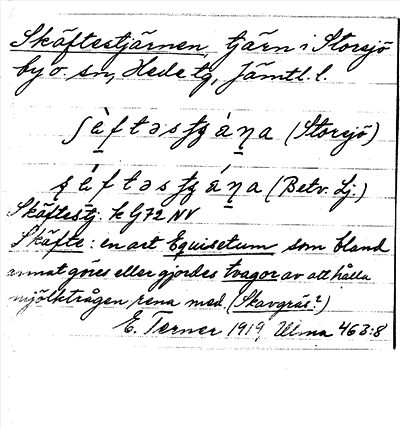 Skäftestjärnen, tjärn i Storsjö
by o. sn, Hede tg, Jämtl. l.
(Storsjö)
(Betv. Lj.)
Skäftestj. k G72 NV
Skäfte: en art Equisetum som bland
annat göres eller gjordes tvagor av att hålla
mjölktrågen rena med (Skavgräs?)
E. Terner 1919, Ulma 463:8